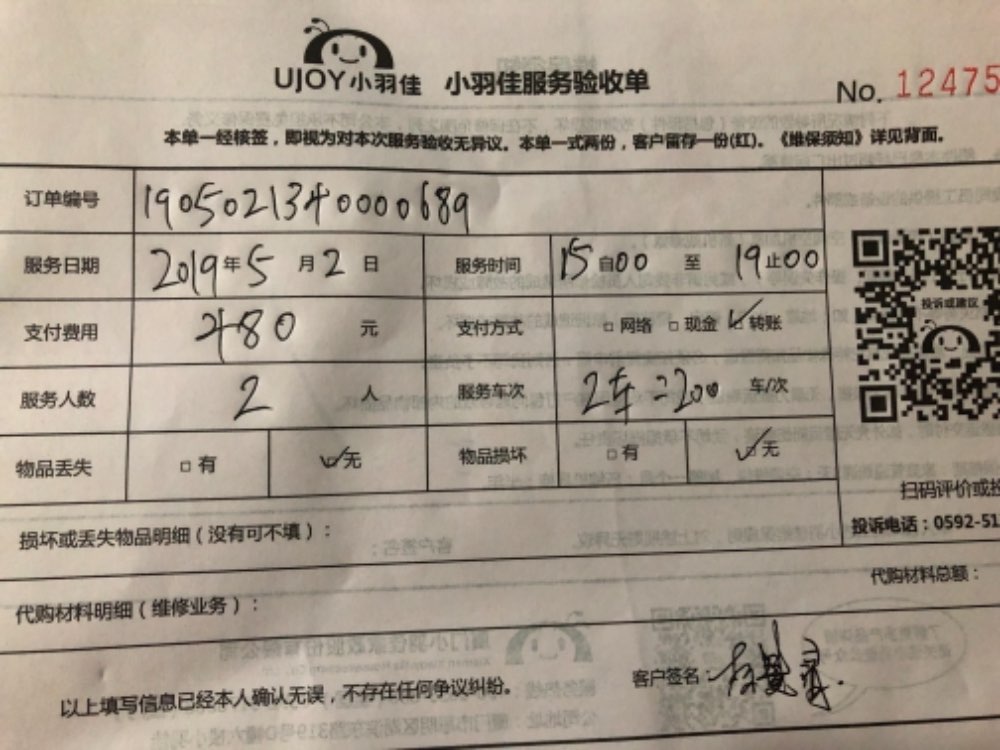 UJOY小羽佳 小羽佳服务验收单
No. 12475
本单一经核签，即视为对本次服务验收无异议。本单一式两份，客户留存一份(红)。《维保须知》详见背面。
订单编号 1905021340000689
服务日期 2019年5月2日 服务时间 15自00至19止00
支付费用 480元 支付方式 □网络 □现金 ☑转账
投诉或建议
服务人数 2人 服务车次 2车 车/次
物品丢失 □有 ☑无 物品损坏 □有 ☑无
扫码评价或投
损坏或丢失物品明细（没有可不填）： 投诉电话：0592-51
代购材料明细（维修业务）： 代购材料总额：
以上填写信息已经本人确认无误，不存在任何争议纠纷。 客户签名：